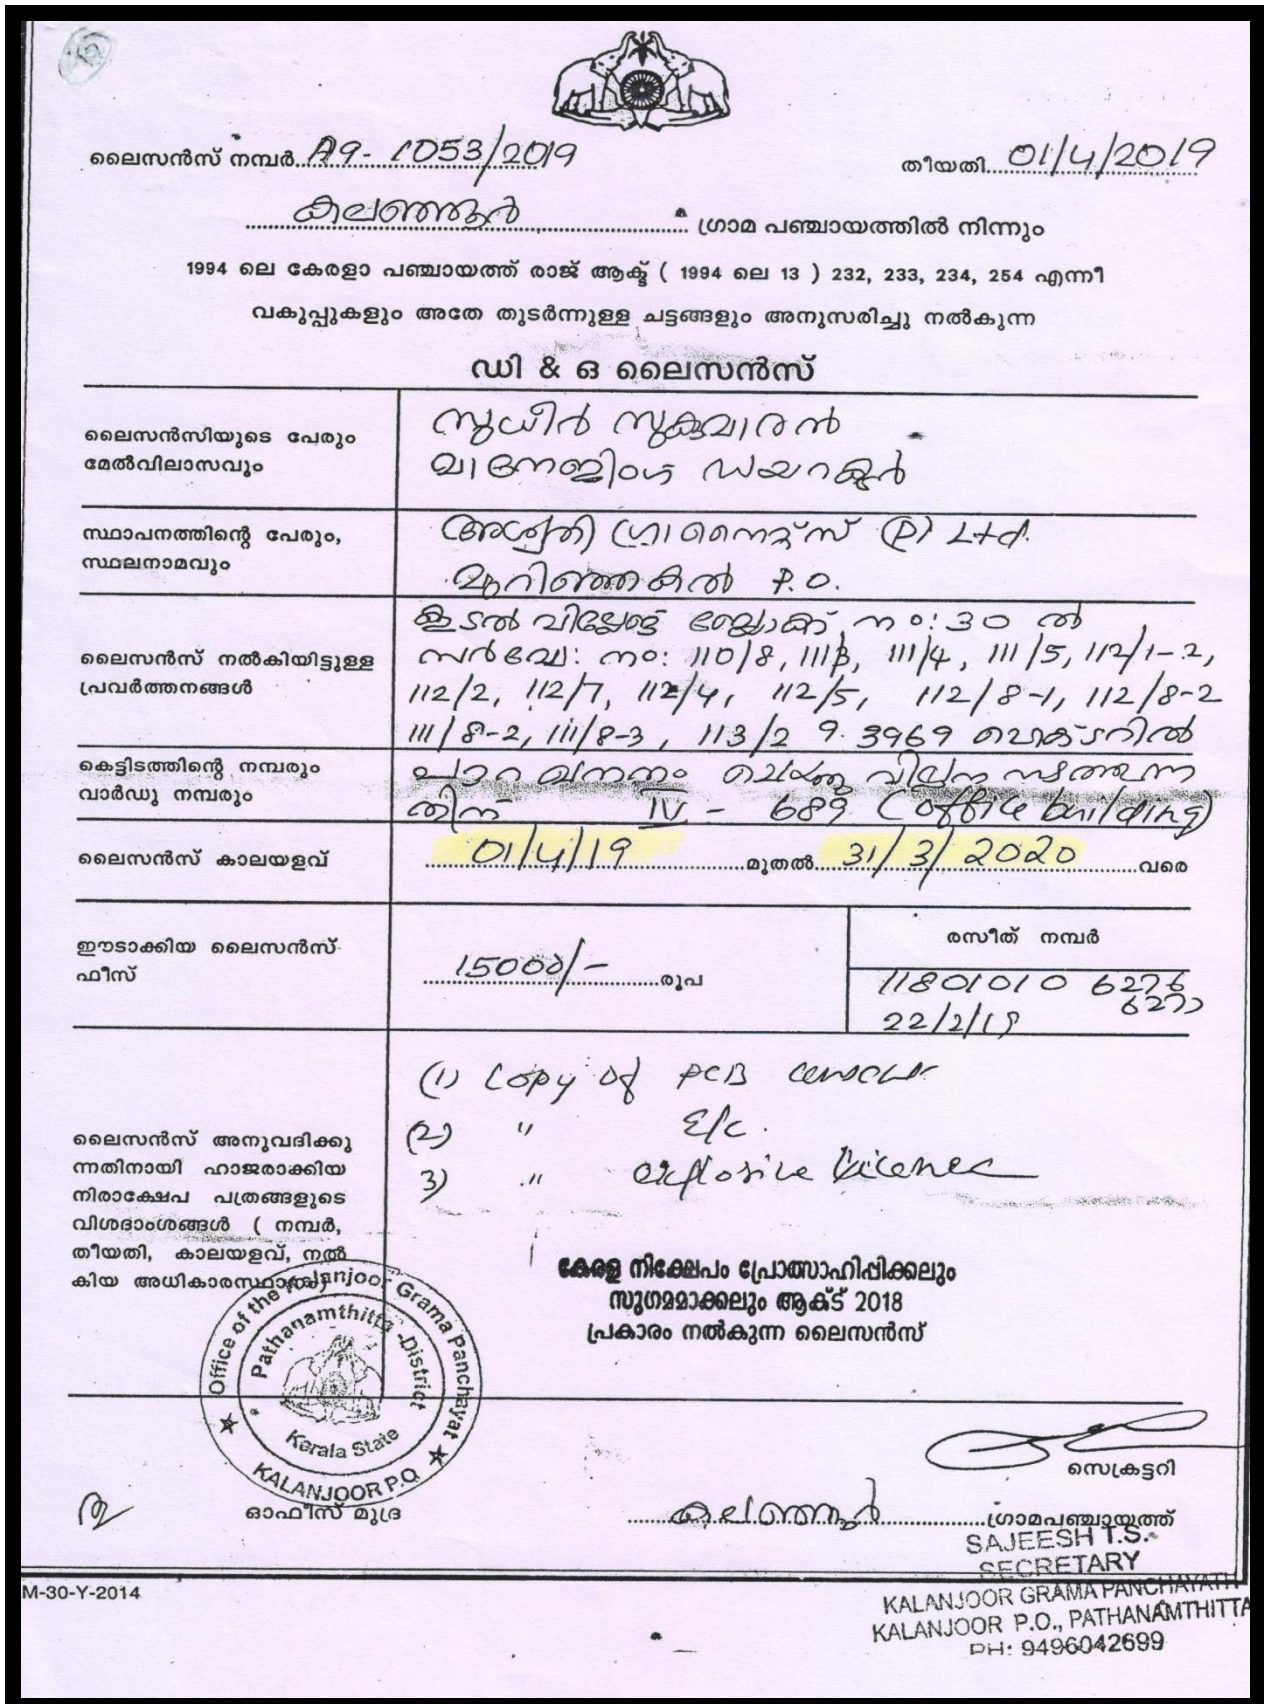 ലൈസൻസ് നമ്പർ A9-1053/2019
തീയതി 01/4/2019
കലഞ്ഞൂർ ഗ്രാമ പഞ്ചായത്തിൽ നിന്നും
1994 ലെ കേരളാ പഞ്ചായത്ത് രാജ് ആക്ട് ( 1994 ലെ 13 ) 232, 233, 234, 254 എന്നീ
വകുപ്പുകളും അതേ തുടർന്നുള്ള ചട്ടങ്ങളും അനുസരിച്ചു നൽകുന്ന
ഡി & ഒ ലൈസൻസ്
ലൈസൻസിയുടെ പേരും
മേൽവിലാസവും
സുധീർ സുകുമാരൻ
മാനേജിംഗ് ഡയറക്ടർ
സ്ഥാപനത്തിന്റെ പേരും,
സ്ഥലനാമവും
അശ്വതി ഗ്രാനൈറ്റ്സ് (P) Ltd.
മുറിഞ്ഞകൽ P.O.
ലൈസൻസ് നൽകിയിട്ടുള്ള
പ്രവർത്തനങ്ങൾ
കൂടൽ വില്ലേജ് ബ്ലോക്ക് നം: 30 ൽ
സർവ്വേ: നം: 110/8, 111/3, 111/4, 111/5, 112/1-2,
112/2, 112/7, 112/4, 112/5, 112/8-1, 112/8-2
111/8-2, 111/8-3, 113/2 9.3969 ഹെക്ടറിൽ
കെട്ടിടത്തിന്റെ നമ്പരും
വാർഡു നമ്പരും
പാറ ഖനനം ചെയ്തു വില്പന നടത്തുന്ന
തിന് IV - 689 (office building)
ലൈസൻസ് കാലയളവ്
01/4/19 മുതൽ 31/3/2020 വരെ
ഈടാക്കിയ ലൈസൻസ്
ഫീസ്
15000/- രൂപ
രസീത് നമ്പർ
11801010 6276
6277
22/2/19
ലൈസൻസ് അനുവദിക്കു
ന്നതിനായി ഹാജരാക്കിയ
നിരാക്ഷേപ പത്രങ്ങളുടെ
വിശദാംശങ്ങൾ ( നമ്പർ,
തീയതി, കാലയളവ്, നൽ
കിയ അധികാരസ്ഥാനം)
(1) Copy of PCB consent
(2) " E/C.
3) " explosive licence
കേരള നിക്ഷേപം പ്രോത്സാഹിപ്പിക്കലും
സുഗമമാക്കലും ആക്ട് 2018
പ്രകാരം നൽകുന്ന ലൈസൻസ്
Office of the Kalanjoor Grama Panchayat
Pathanamthitta -District
Kerala State
KALANJOOR P.O
ഓഫീസ് മുദ്ര
സെക്രട്ടറി
കലഞ്ഞൂർ ഗ്രാമപഞ്ചായത്ത്
SAJEESH T.S.
SECRETARY
KALANJOOR GRAMA PANCHAYATH
KALANJOOR P.O., PATHANAMTHITTA
PH: 9496042699
M-30-Y-2014